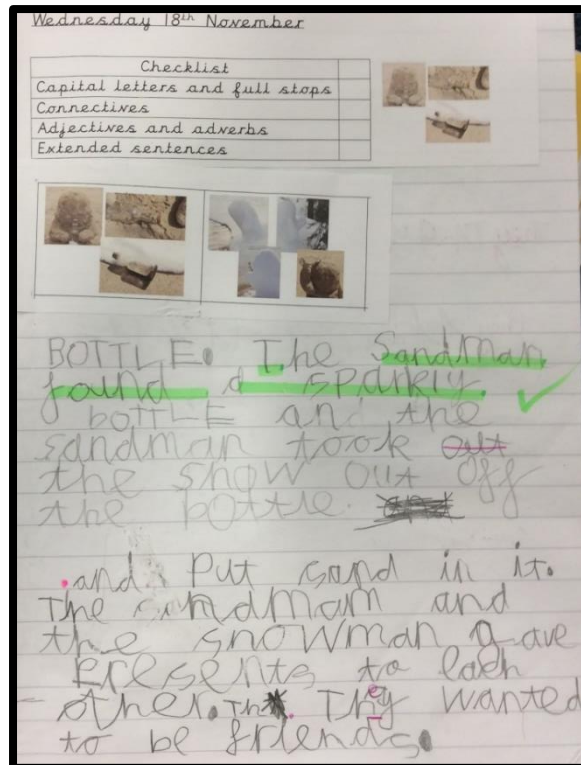 Wednesday 18th November
Checklist
Capital letters and full stops
Connectives
Adjectives and adverbs
Extended sentences
BOTTLE. The Sandman
found a sparkly
bOTTLE and the
sandman took out
the snow out off
the bottle. and
.and Put sand in it.
The sandmam and
the snowman gave
Presents to each
other. Th. They wanted
to be friends.